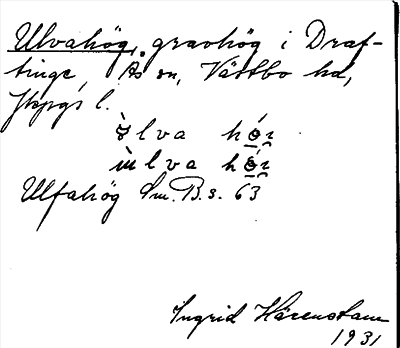 Ulvahög, gravhög i Draf-
tinge, Ås sn, Västbo hd,
Jkpgs l.
lva h
lva h
Ulfahög Sm. B. s. 63
Ingrid Härenstam
1931